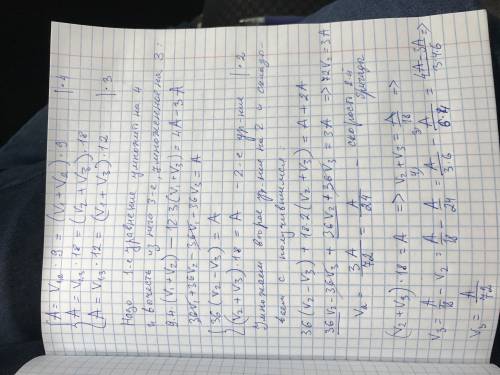 A = V₁₂ · 9 = (V₁ + V₂) · 9 | · 4
A = V₂₃ · 18 = (V₂ + V₃) · 18
A = V₁₃ · 12 = (V₁ + V₃) · 12 | · 3
Надо 1-е уравнение умножить на 4
и вычесть из него 3-е, умноженное на 3:
9·4·(V₁+V₂) − 12·3(V₁+V₃) = 4A − 3A
36V₁ + 36V₂ − 36V₁ − 36V₃ = A
36(V₂ − V₃) = A
(V₂ + V₃) · 18 = A − 2-е ур-ние | · 2
Умножаем второе ур-ние на 2 и склады-
ваем с получившимся
36(V₂ − V₃) + 18·2(V₂ + V₃) = A + 2A
36V₂ − 36V₃ + 36V₂ + 36V₃ = 3A => 72V₂ = 3A
V₂ = 3·A/72 = A/24 − скорость 2-й
бригады
(V₂ + V₃) · 18 = A => V₂ + V₃ = A/18 =>
V₃ = A/18 − V₂ = A/18 − A/24 = A/3·6 − A/6·4 = 4A − 3A/3·4·6 =>
V₃ = A/72